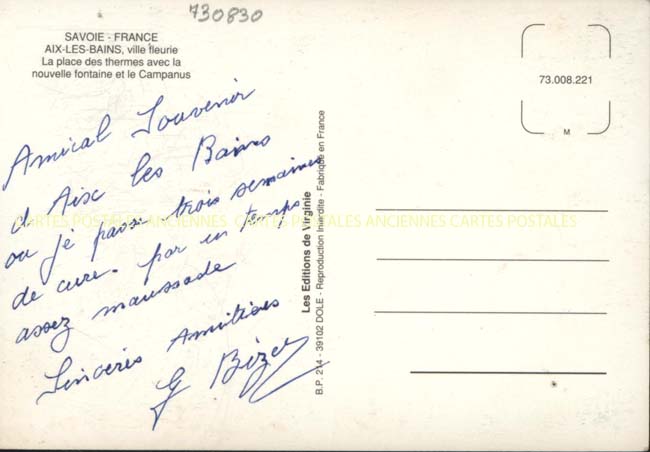 730830
SAVOIE - FRANCE
AIX-LES-BAINS, ville fleurie
La place des thermes avec la
nouvelle fontaine et le Campanus
Amical Souvenir
d Aix les Bains
ou je passe trois semaines
de cure. par un temps
assez maussade
Sincères Amitiées
G Bizer
Les Editions de Virginie
B.P. 214 - 39102 DOLE - Reproduction Interdite - Fabriqué en France
73.008.221
M
CARTES POSTALES ANCIENNES CARTES POSTALES ANCIENNES CARTES POSTALES